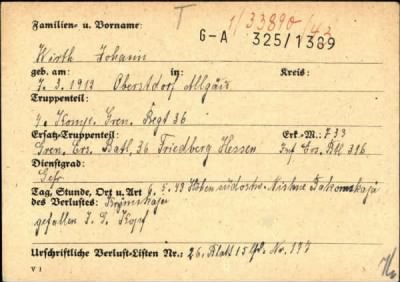 Familien- u. Vorname: T 1/33890/42
G-A 325/1389
Wirth Johann
geb. am: in: Kreis:
7. 3. 1913 Oberstdorf Allgäu
Truppenteil:
9. Komp. Gren. Regt 36
Ersatz-Truppenteil: Erk.-M.: 733
Gren. Ers. Batl. 36 Friedberg Hessen Inf. Ers. Btl 316
Dienstgrad:
Gefr.
Tag, Stunde, Ort u. Art 6. 5. 43 Höhen südostw. Nishne Bakanskaja
des Verlustes: Krymskaja
gefallen I. G. Kopf
Urschriftliche Verlust-Listen Nr.: 26. Blatt 15 lfd. No. 177
V 1